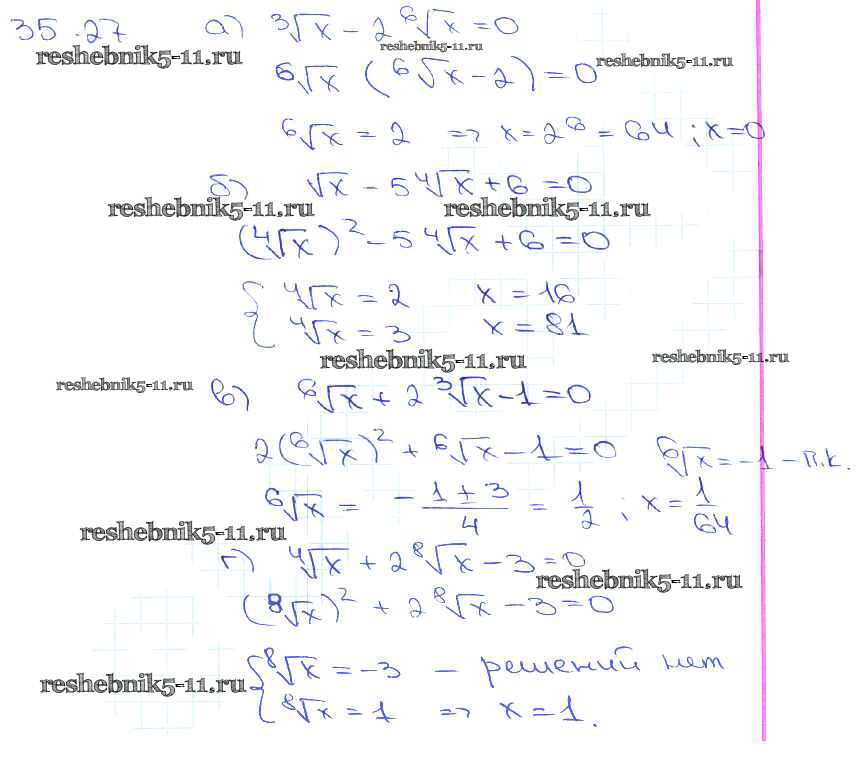 35.27 а) ³√x − 2 ⁶√x = 0
reshebnik5-11.ru reshebnik5-11.ru
⁶√x (⁶√x − 2) = 0 reshebnik5-11.ru
⁶√x = 2 => x = 2⁶ = 64 ; x = 0
б) √x − 5 ⁴√x + 6 = 0
reshebnik5-11.ru reshebnik5-11.ru
(⁴√x)² − 5 ⁴√x + 6 = 0
{ ⁴√x = 2 x = 16
⁴√x = 3 x = 81
reshebnik5-11.ru reshebnik5-11.ru
reshebnik5-11.ru
в) ⁶√x + 2 ³√x − 1 = 0
2(⁶√x)² + ⁶√x − 1 = 0 ⁶√x = −1 − п.к.
⁶√x = −(1 ± 3)/4 = 1/2 ; x = 1/64
reshebnik5-11.ru
г) ⁴√x + 2 ⁸√x − 3 = 0
reshebnik5-11.ru
(⁸√x)² + 2 ⁸√x − 3 = 0
{ ⁸√x = −3 − решений нет
reshebnik5-11.ru
⁸√x = 1 => x = 1.